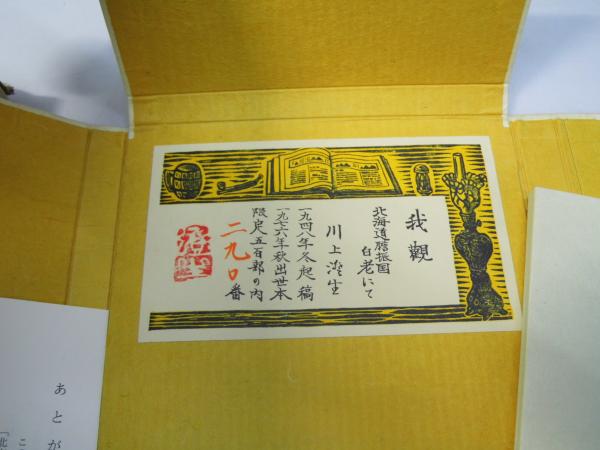 我觀
北海道膽振国
白老にて
川上澄生
一九四八年冬起稿
一九七六年秋出世本
限定五百部の内
二九〇番
あとが
こ
「北